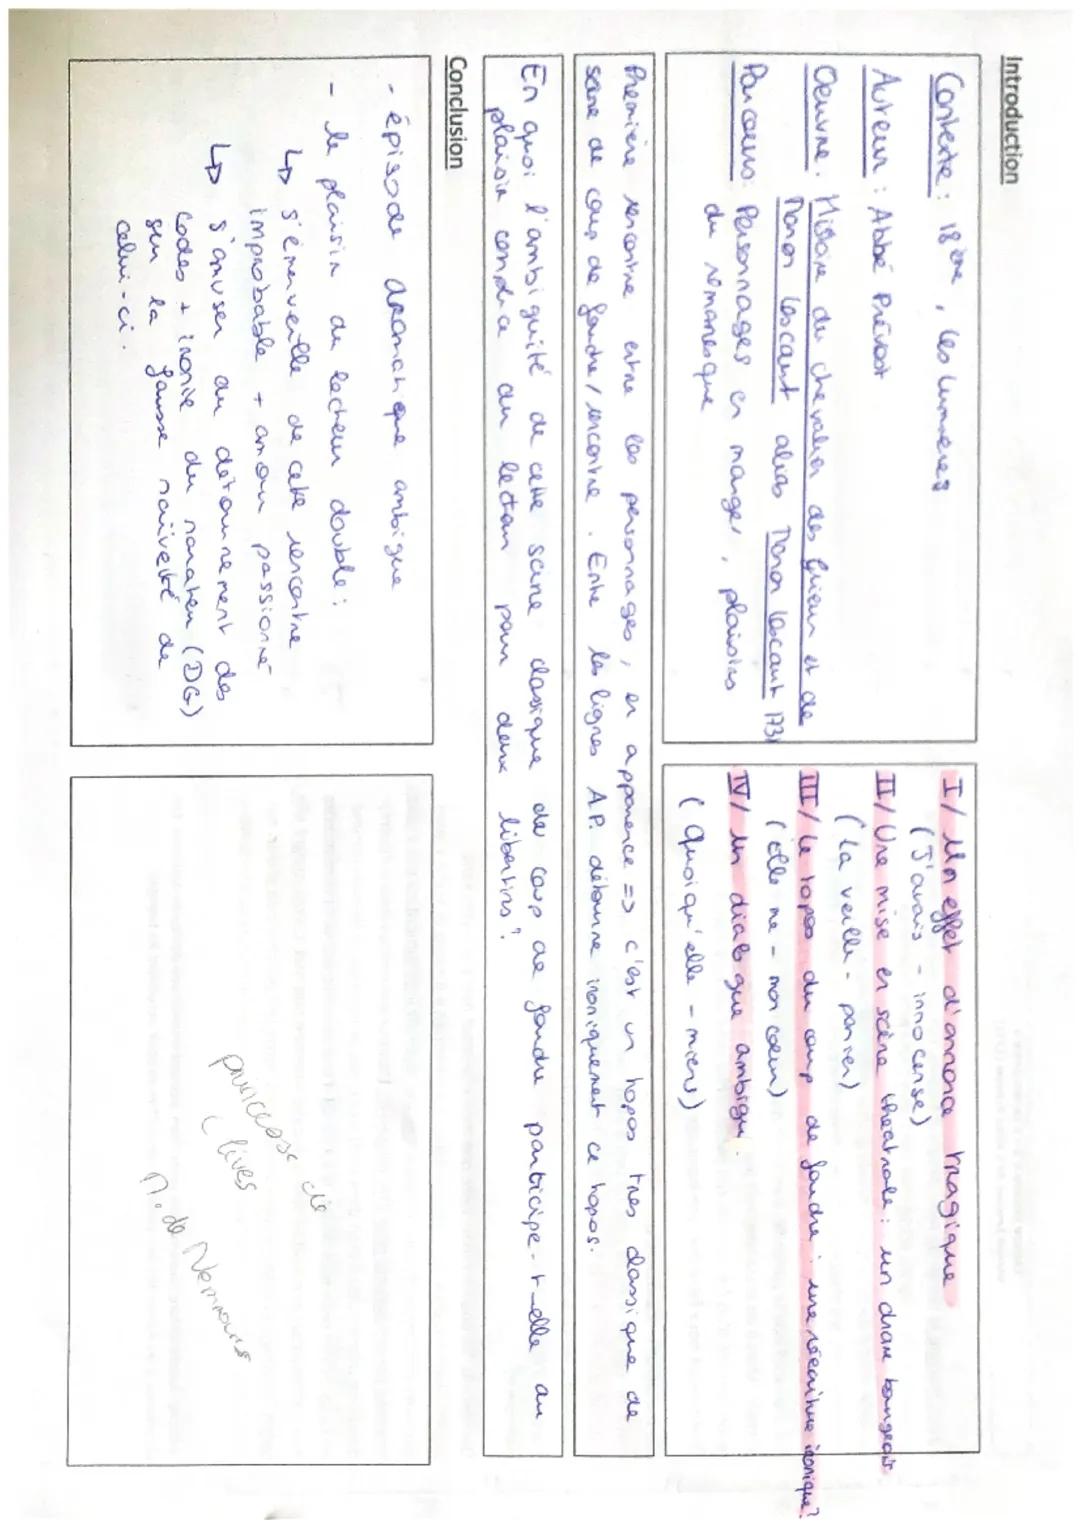 Introduction
Contexte : 18ème, les lumières
Auteur : Abbé Prévost
Oeuvre : Histoire du chevalier des Grieux et de
Manon Lescaut alias Manon Lescaut 1731
Parcours : Personnages en marge, plaisirs
du romanesque
I/ Un effet d'annonce tragique
(J'avais - innocense)
II/ Une mise en scène théatrale : un drame bourgeois
(la veille - panier)
III/ Le topos du coup de foudre : une réécriture ironique?
(Elle me - mon coeur)
IV/ un dialogue ambigu.
(Quoiqu'elle - miens)
Première rencontre entre les personnages, en apparence => c'est un topos très classique de
scène de coup de foudre / rencontre. Entre les lignes A.P. détourne ironiquement ce topos.
En quoi l'ambiguité de cette scène classique de coup de foudre participe-t-elle au
plaisir du lecteur pour deux libertins?
Conclusion
- épisode dramatique ambigue
- le plaisir du lecteur double :
↳ s'émerveille de cette rencontre
improbable + amour passionné
↳ s'amuser du détournement des
codes + ironie du narrateur (DG)
sur la fausse naïveté de
celui-ci.
princesse de
Clèves
M. de Nemours